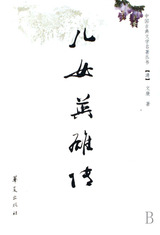 中国古典文学名著丛书
【清】文康 著
儿女英雄传
华夏出版社
B